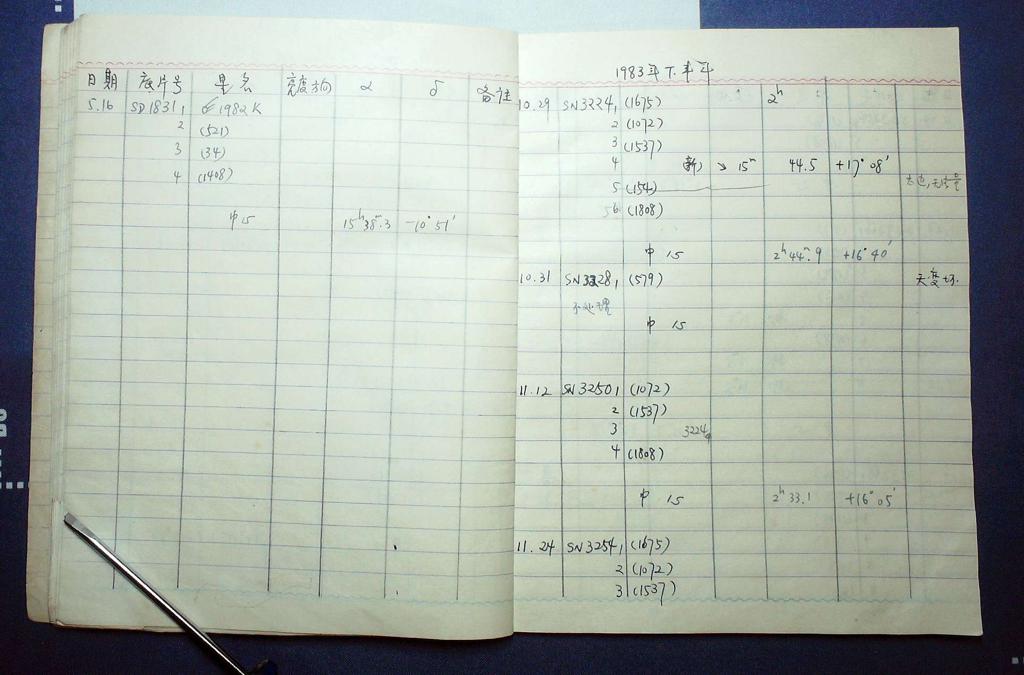 日期 底片号 星名 亮度 α δ 备注
5.16 SD1831,1 1982K
2 (521)
3 (34)
4 (1408)
中 15 15ʰ38ᵐ.3 -10°51′
1983年下半年
10.29 SN3224,1 (1675) 2ʰ
2 (1072)
3 (1537)
4 新 15ᵐ 44.5 +17°08′
5 (154)
6 (1808)
中 15 2ʰ44ᵐ.9 +16°40′
10.31 SN3228,1 (579) 天变坏.
不处理
中 15
11.12 SN3250,1 (1072)
2 (1537)
3 3224
4 (1808)
中 15 2ʰ33.1 +16°05′
11.24 SN3254,1 (1675)
2 (1072)
3 (1537)